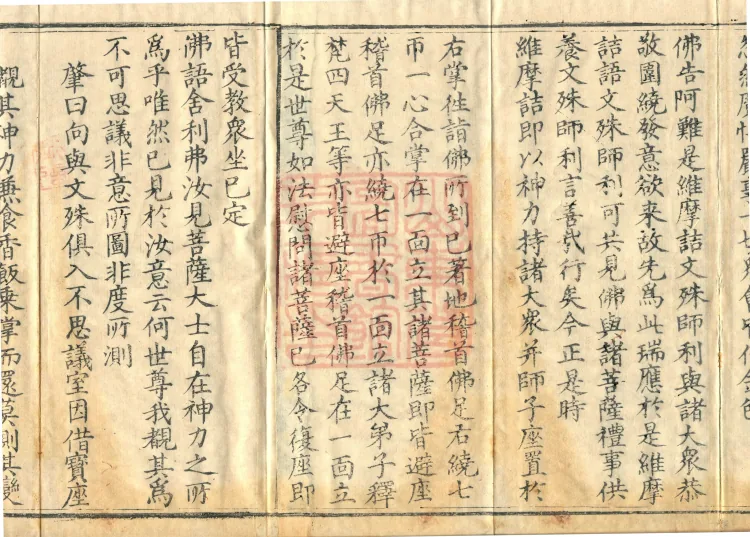 佛告阿難是維摩詰文殊師利與諸大衆恭
敬圍繞發意欲來故先爲此瑞應於是維摩
詰語文殊師利可共見佛與諸菩薩禮事供
養文殊師利言善哉行矣今正是時
維摩詰即以神力持諸大衆并師子座置於
右掌往詣佛所到已著地稽首佛足右繞七
帀一心合掌在一面立其諸菩薩即皆避座
稽首佛足亦繞七帀於一面立諸大弟子釋
梵四天王等亦皆避座稽首佛足在一面立
於是世尊如法慰問諸菩薩已各令復座即
皆受教衆坐已定
佛語舍利弗汝見菩薩大士自在神力之所
爲乎唯然已見於汝意云何世尊我覩其爲
不可思議非意所圖非度所測
肇曰向與文殊俱入不思議室因借寶座
覩其神力兼食香飯乘掌而還莫測其變